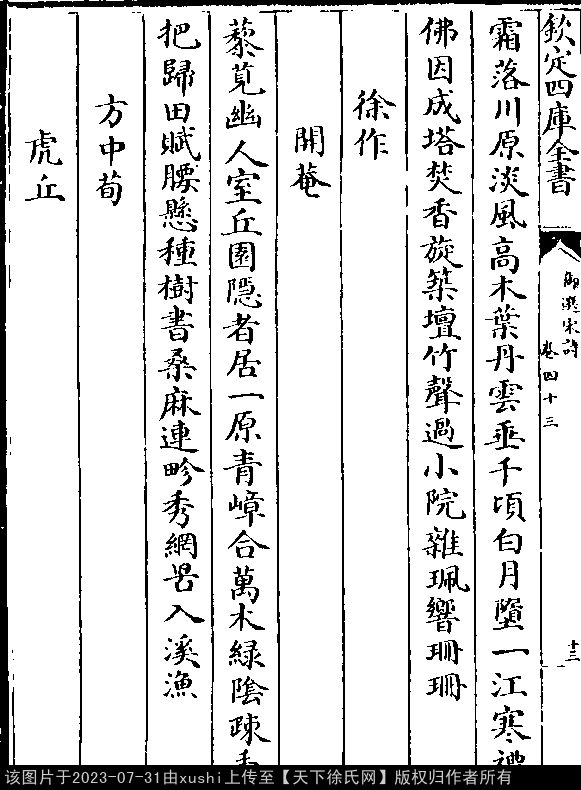 欽定四庫全書
御選宋詩 卷四十三
十三
霜落川原淡風高木葉丹雲垂千頃白月墮一江寒禮
佛因成塔焚香旋築壇竹聲過小院雜珮響珊珊
徐作
開菴
藜莧幽人室丘園隱者居一原青嶂合萬木綠陰疎手
把歸田賦腰懸種樹書桑麻連畛秀網罟入溪漁
方中荀
虎丘
该图片于2023-07-31由xushi上传至【天下徐氏网】版权归作者所有